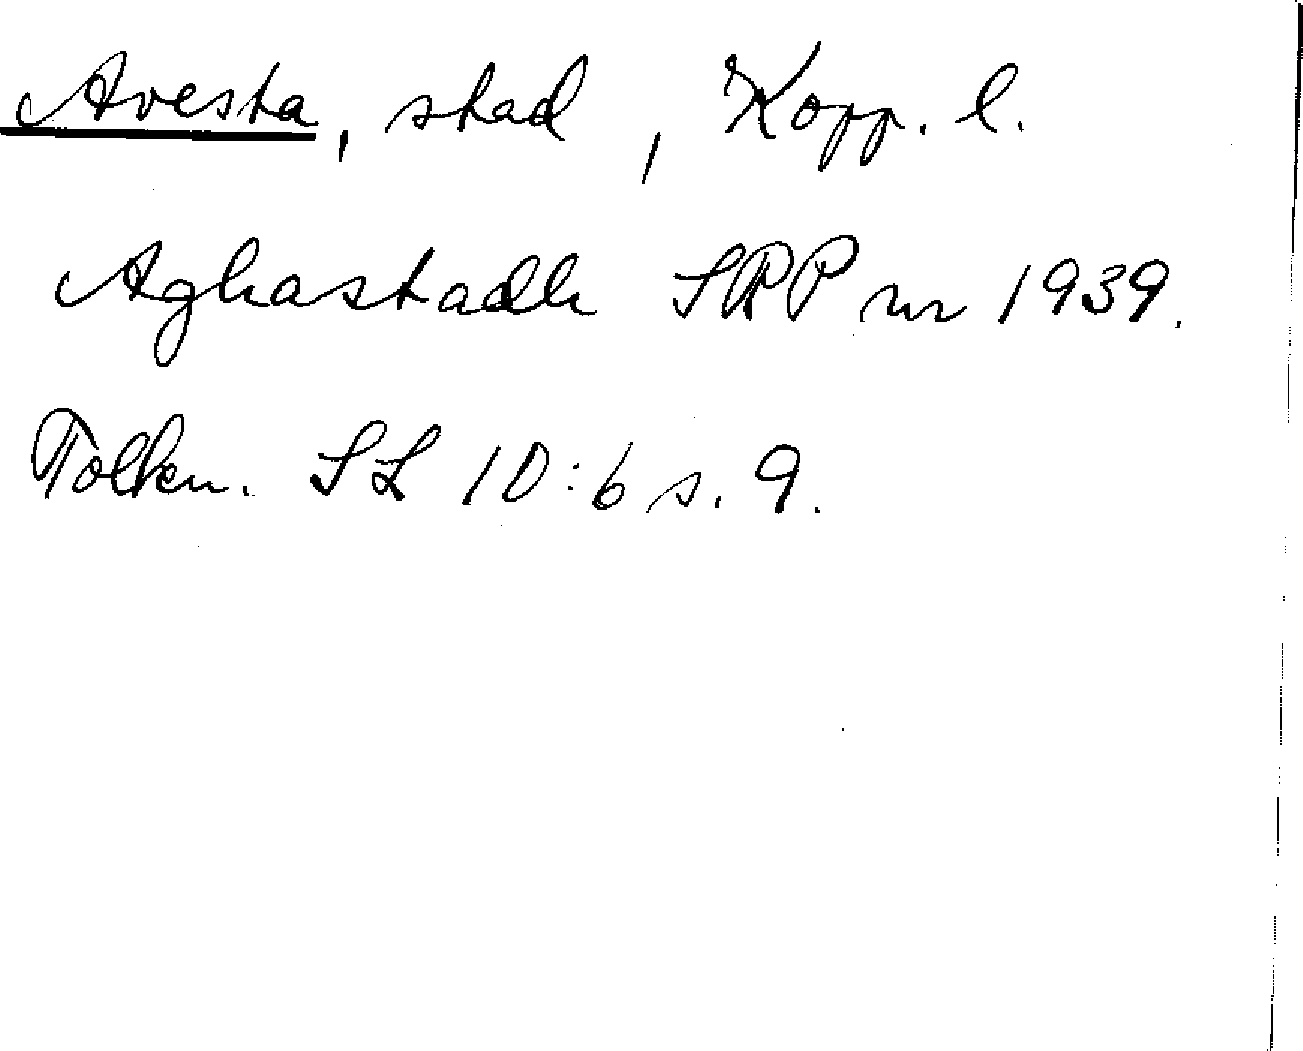 Avesta, stad, Kopp. l.
Aghastadh SRP nr 1939.
Tolkn. SL 10:6 s. 9.